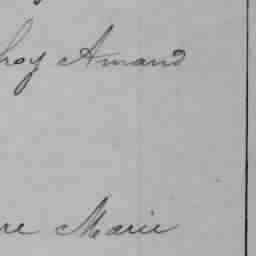 hoy Amand
re Marie